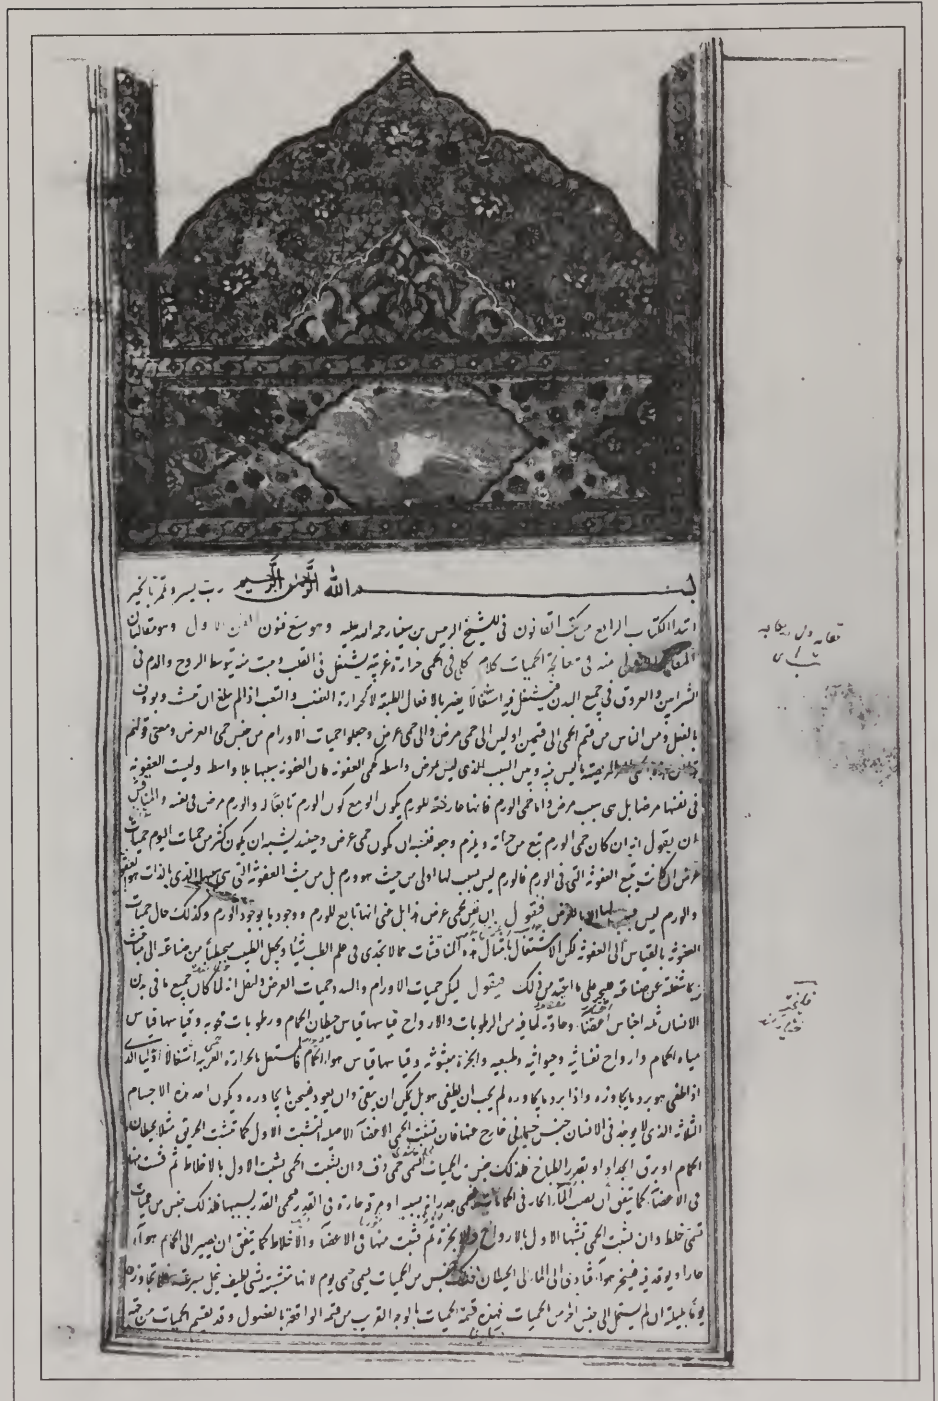 بسم الله الرحمن الرحيم رب يسر وتمم بالخير
ابتدا الكتاب الرابع من كتب القانون فى للشيخ الرئيس بن سينا رحمة الله عليه وهو سبع فنون الفن الاول وهو مقالتان
المقالة الاولى منه فى معالجة الحميات كلام كلى فى الحمى حرارة غريبة يشتعل فى القلب وينبث منه بتوسط الروح والدم فى
الشرايين والعروق فى جميع البدن فيشتعل فيه اشتعالا يضر بالافعال الطبيعة لا كحرارة الغضب والتعب اذا لم يبلغ ان تتشبث وتووف
بالفعل ومن الناس من قسم الحمى الى قسمين اوليين الى حمى مرض والى حمى عرض وجعلوا حميات الاورام من جنس حمى العرض ومعنى قولهم
المرضية ما ليس بينه وبين السبب الذى ليس بمرض واسطة كحمى العفونة فان العفونة سببها بلا واسطة وليست العفونة
فى نفسها مرضا بل هى سبب مرض واما حمى الورم فانها عارضة للورم يكون الورم مع كون الورم تابعة له والورم مرض فى نفسه
ان يقول انه ان كان حمى الورم تتبع من حرارته ويلزم وجوده فيشبه ان يكون حمى عرض وحينئذ يشبه ان يكون كثير من حميات اليوم حميات
عرض ان كانت تتبع العفونة التى فى الورم فالورم ليس بسبب لها اولى من حيث هو ورم بل من حيث العفونة التى فيه بالذات هو
والورم ليس بالعرض فيقول ان نعنى بحمى عرض هذا بل نعنى انها تابع للورم وجودها بوجود الورم وكذلك حال حميات
العفونة بالقياس الى العفونة لكن الاشتغال بامثال هذه المناقشات مما لا تجدى فى علم الطب شيئا ويجعل الطبيب متخطيا من صناعته الى مباحث
ربما شغلته عن صناعته فيقول ليكن حميات الاورام والسدد حميات العرض ولنقل انه لما كان جميع ما فى بدن
الانسان ثلثة اجناس اعضا وحاوية لما فيه من الرطوبات والارواح قياسها قياس حيطان الحمام ورطوبات محوية وقياسها قياس
مياه الحمام وارواح نفسانية وحيوانية وطبيعية وابخرة مبثوثة وقياسها قياس هوا الحمام فالمشتعل بالحرارة الغريبة اشتعالا اوليا الذى
اذا طفى هو برد ما يجاوره واذا برد ما يجاوره لم يجب ان يطفى هو بل يمكن ان يبقى وان يعود فيسخن ما يجاوره ويكون احد هذه الاجسام
الثلاثة الذى لا يوجد فى الانسان جنس جسمانى خارج عنها فان تشبثت الحمى بالاعضاء الاصلية التشبث الاول كما تتشبث الحريق مثلا بحيطان
الحمام او بزق الحداد او بقدر الطباخ فذلك جنس من الحميات يسمى حمى دق وان تشبثت الحمى تشبث الاول بالاخلاط ثم فشت منها
فى الاعضاء كما يتفق ان يصب الماء الحار فى الحمام فتحمى جدرانه بسببه او مرقة حارة فى القدر فتحمى القدر بسببها فذلك جنس من حميات
تسمى حمى خلط وان تشبثت الحمى تشبثها الاول بالارواح والابخرة ثم فشت منها فى الاعضا والاخلاط كما يتفق ان يصير الى الحمام هواء
حار او يوقد فيه فيسخن هواؤه فيتادى الى الماء والى الحيطان فذلك جنس من الحميات يسمى حمى يوم لانها متشبثة بشئ لطيف تتحلل بسرعة
يوما بليلة ان لم يستحيل الى جنس اخر من الحميات فهذه قسمة الحميات بالوجه القريب من قسمة الواقعة بالفصول وقد يقسم الحميات من جهة